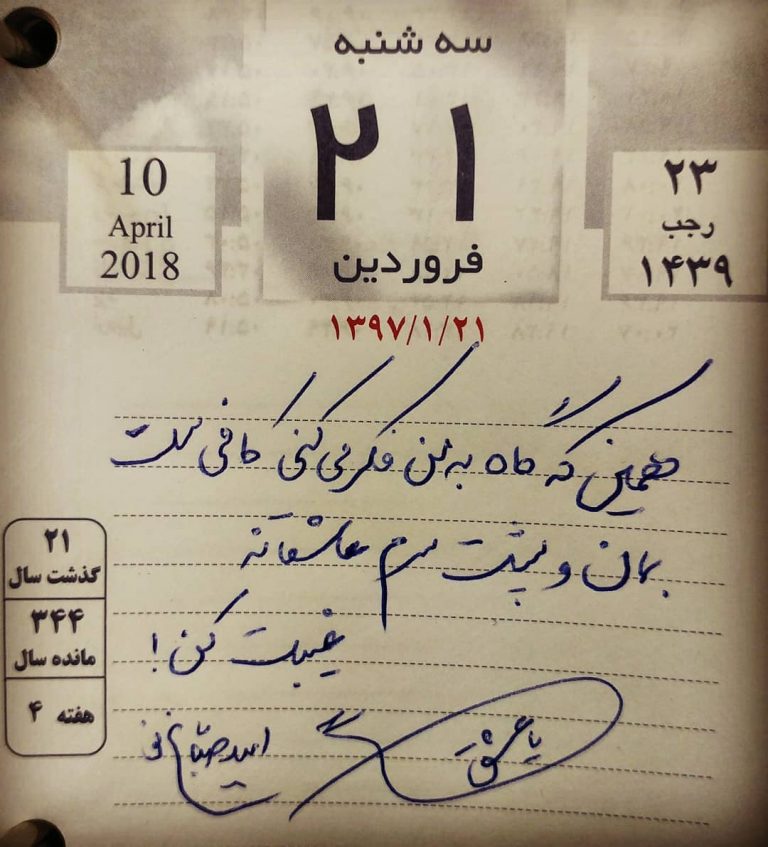 سه شنبه
۲۱
فروردین
۱۳۹۷/۱/۲۱
10
April
2018
۲۳
رجب
۱۴۳۹
همین که گاه به من فکر می کنی کافی ست
بمان و پشت سرم عاشقانه
غیبت کن!
با عشق
امید صباغ نو
۲۱
گذشت سال
۳۴۴
مانده سال
هفته ۴